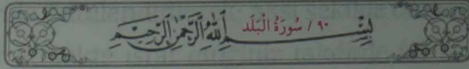 ٩٠ / سُورَةُ الْبَلَد
بِسْمِ اللَّهِ الرَّحْمَٰنِ الرَّحِيمِ